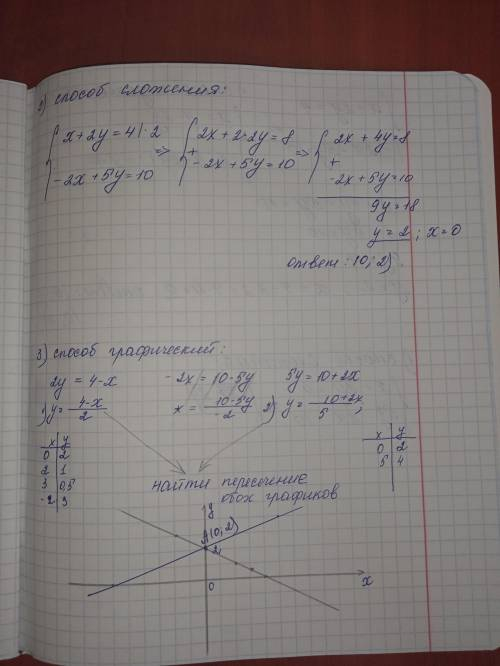 2) способ сложения:
{ x+2y=4 |·2 => { 2x+2·2y=8 => { 2x+4y=8
+ +
-2x+5y=10 -2x+5y=10 -2x+5y=10
9y=18
y=2; x=0
ответ: (0; 2)
3) способ графический:
2y = 4-x -2x = 10-5y 5y=10+2x
1) y= (4-x)/2 x = (10-5y)/-2 2) y= (10+2x)/5;
x y
0 2
2 1
3 0,5
-2 3
x y
0 2
5 4
найти пересечение
обох графиков
y
A(0; 2)
2
0
x